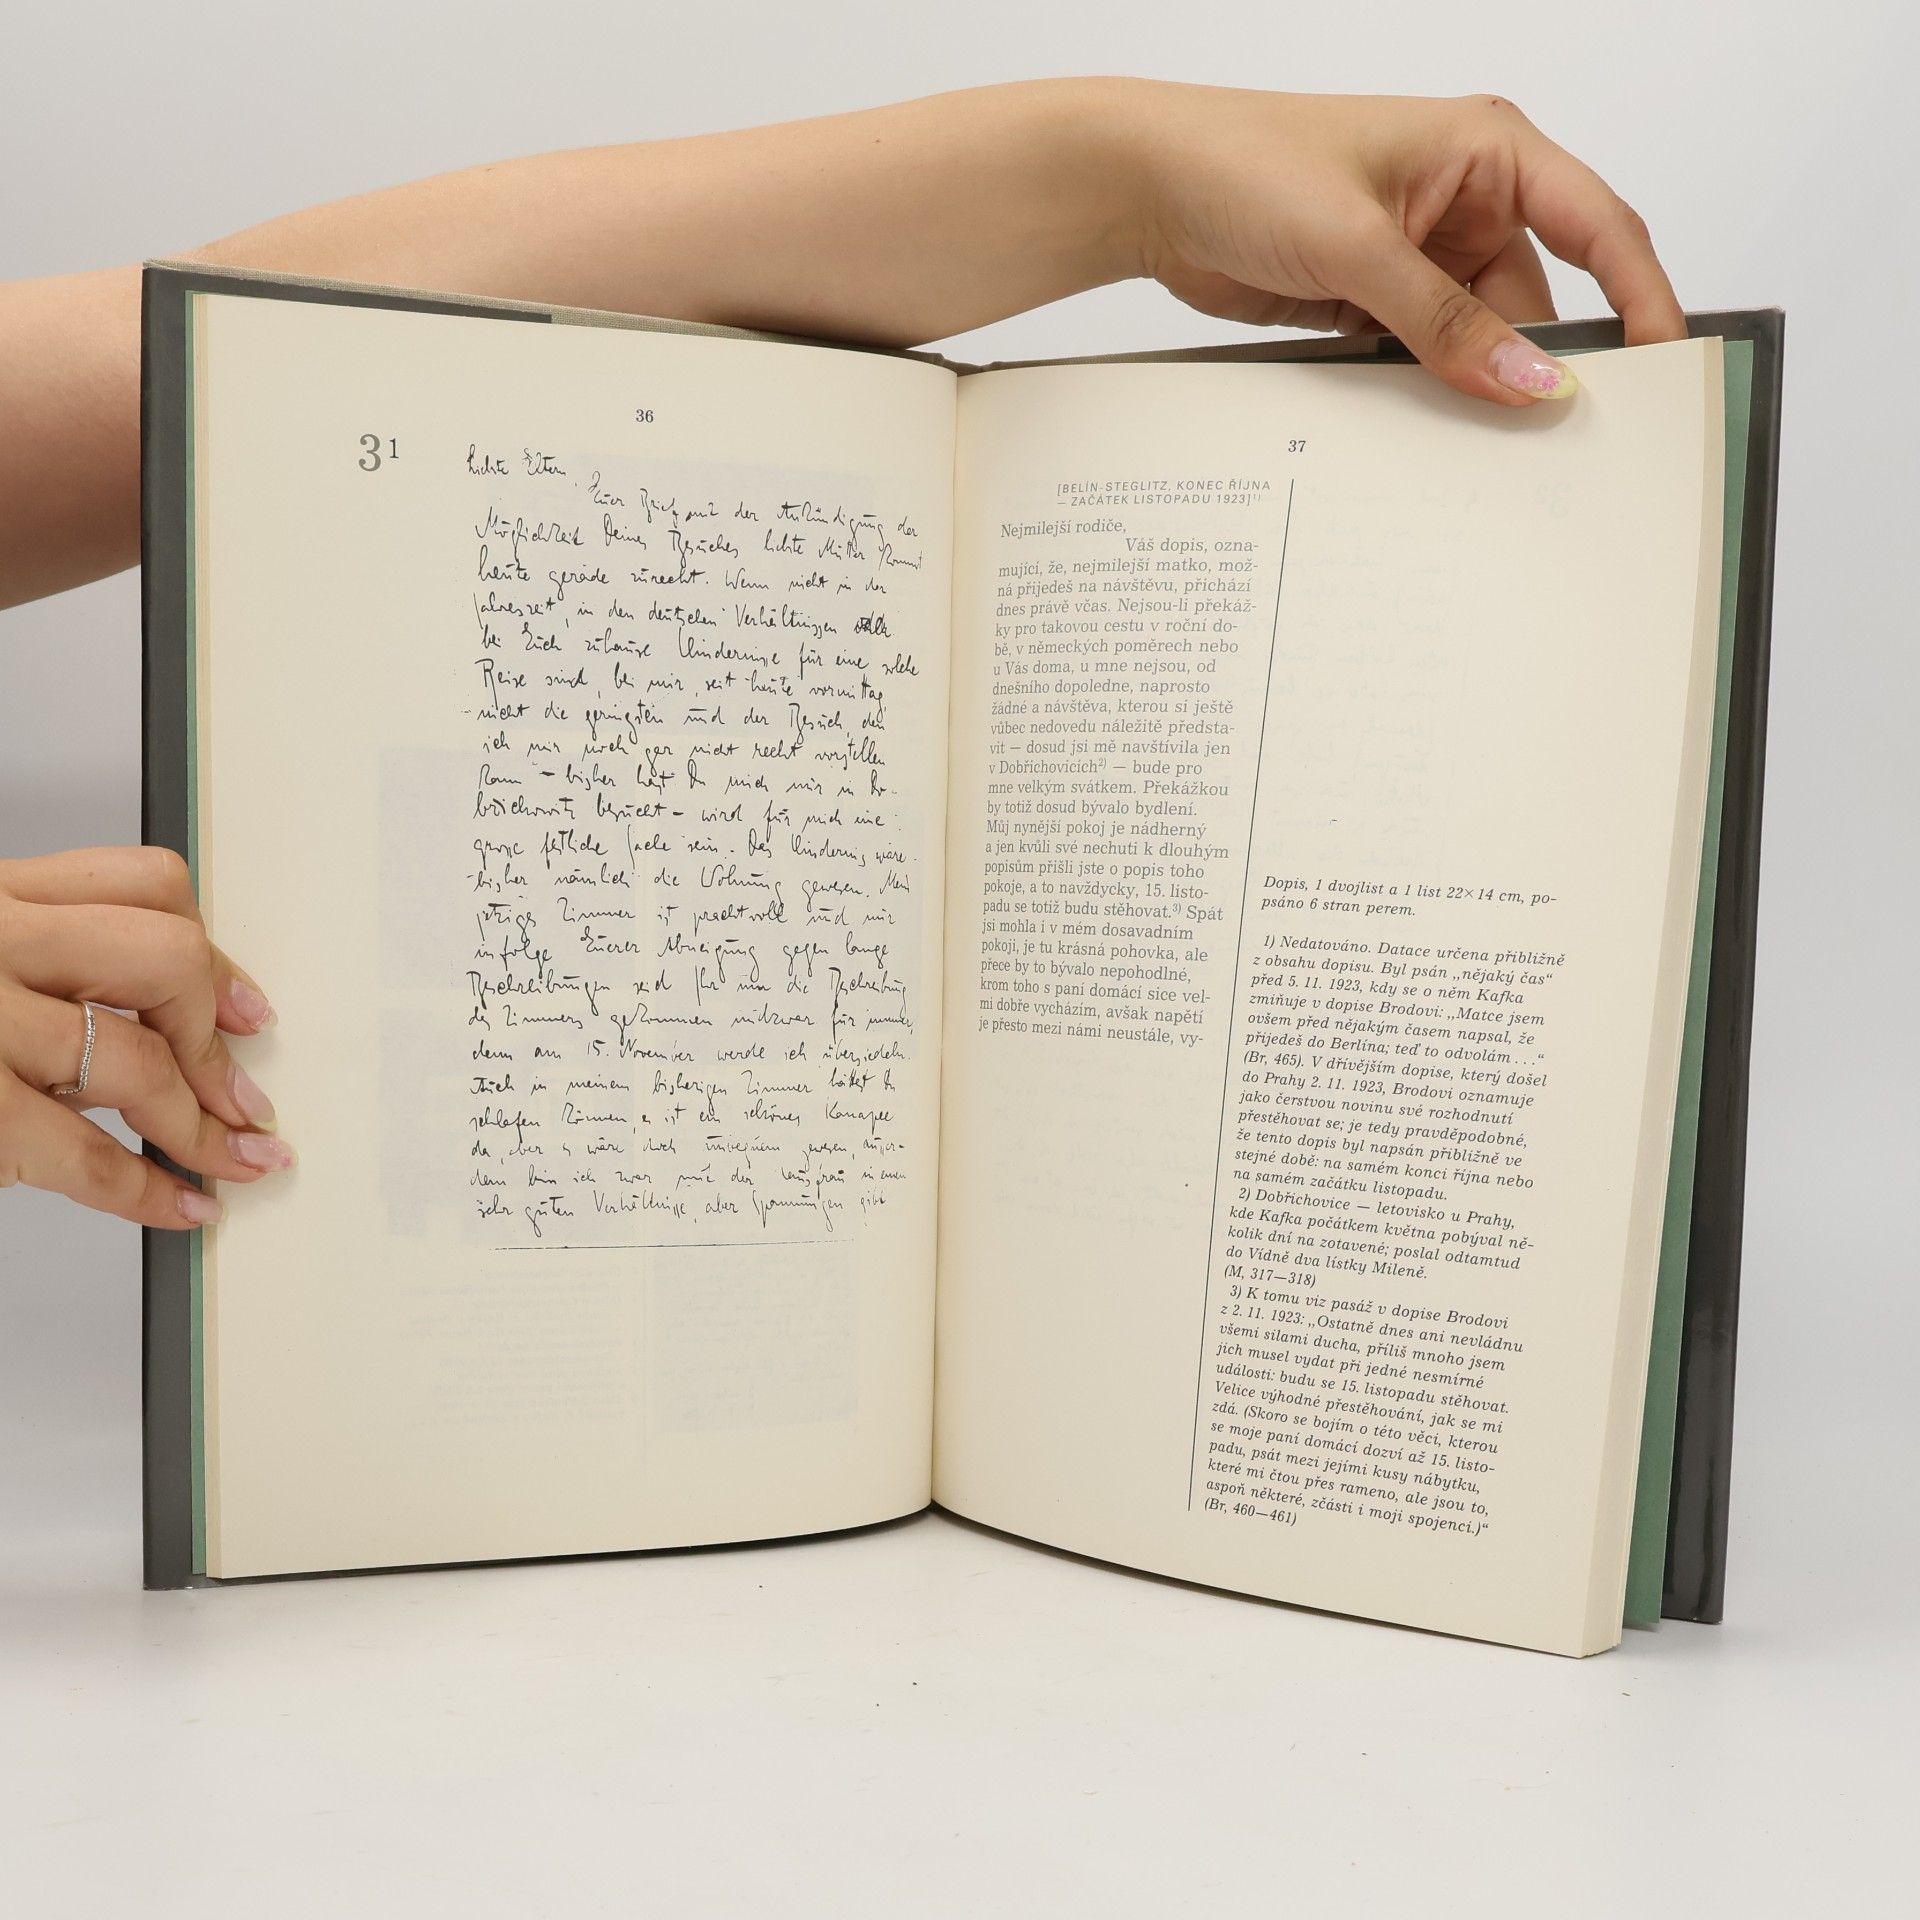 36
3¹
Liebste Eltern,
Euer Brief mit der Ankündigung der
Möglichkeit Deines Besuches liebste Mutter kommt
heute gerade zurecht. Wenn nicht in der
Jahreszeit, in den deutschen Verhältnissen oder
bei Euch zuhause Hindernisse für eine solche
Reise sind, bei mir, seit heute vormittag,
nicht die geringsten und der Besuch, den
ich mir noch gar nicht recht vorstellen
kann – bisher hast Du mich nur in Do-
břichowitz besucht – wird für mich eine
grosse festliche Sache sein. Das Hindernis wäre
bisher nämlich die Wohnung gewesen. Mein
jetziges Zimmer ist prachtvoll und nur
infolge Euerer Abneigung gegen lange
Beschreibungen seid Ihr um die Beschreibung
des Zimmers gekommen undzwar für immer,
denn am 15. November werde ich übersiedeln.
Auch in meinem bisherigen Zimmer hättest Du
schlafen können, es ist ein schönes Kanapee
da, aber es wäre doch unbequem gewesen, ausser-
dem bin ich zwar mit der Hausfrau in einem
sehr guten Verhältnisse, aber Spannungen gibt
37
[BELÍN-STEGLITZ, KONEC ŘÍJNA
— ZAČÁTEK LISTOPADU 1923]¹⁾
Nejmilejší rodiče,
Váš dopis, ozna-
mující, že, nejmilejší matko, mož-
ná přijedeš na návštěvu, přichází
dnes právě včas. Nejsou-li překáž-
ky pro takovou cestu v roční do-
bě, v německých poměrech nebo
u Vás doma, u mne nejsou, od
dnešního dopoledne, naprosto
žádné a návštěva, kterou si ještě
vůbec nedovedu náležitě představ-
vit — dosud jsi mě navštívila jen
v Dobřichovicích²⁾ — bude pro
mne velkým svátkem. Překážkou
by totiž dosud bývalo bydlení.
Můj nynější pokoj je nádherný
a jen kvůli své nechuti k dlouhým
popisům přišli jste o popis toho
pokoje, a to navždycky, 15. listo-
padu se totiž budu stěhovat.³⁾ Spát
jsi mohla i v mém dosavadním
pokoji, je tu krásná pohovka, ale
přece by to bývalo nepohodlné,
krom toho s paní domácí sice vel-
mi dobře vycházím, avšak napětí
je přesto mezi námi neustále, vy-
Dopis, 1 dvojlist a 1 list 22×14 cm, po-
psáno 6 stran perem.
1) Nedatováno. Datace určena přibližně
z obsahu dopisu. Byl psán „nějaký čas“
před 5. 11. 1923, kdy se o něm Kafka
zmiňuje v dopise Brodovi: „Matce jsem
ovšem před nějakým časem napsal, že
přijedeš do Berlína; teď to odvolám . . .“
(Br, 465). V dřívějším dopise, který došel
do Prahy 2. 11. 1923, Brodovi oznamuje
jako čerstvou novinu své rozhodnutí
přestěhovat se; je tedy pravděpodobné,
že tento dopis byl napsán přibližně ve
stejné době: na samém konci října nebo
na samém začátku listopadu.
2) Dobřichovice — letovisko u Prahy,
kde Kafka počátkem května pobýval ně-
kolik dní na zotavené; poslal odtamtud
do Vídně dva lístky Mileně.
(M, 317—318)
3) K tomu viz pasáž v dopise Brodovi
z 2. 11. 1923: „Ostatně dnes ani nevládnu
všemi silami ducha, příliš mnoho jsem
jich musel vydat při jedné nesmírné
události: budu se 15. listopadu stěhovat.
Velice výhodné přestěhování, jak se mi
zdá. (Skoro se bojím o této věci, kterou
se moje paní domácí dozví až 15. listo-
padu, psát mezi jejími kusy nábytku,
které mi čtou přes rameno, ale jsou to,
aspoň některé, zčásti i moji spojenci.)“
(Br, 460—461)